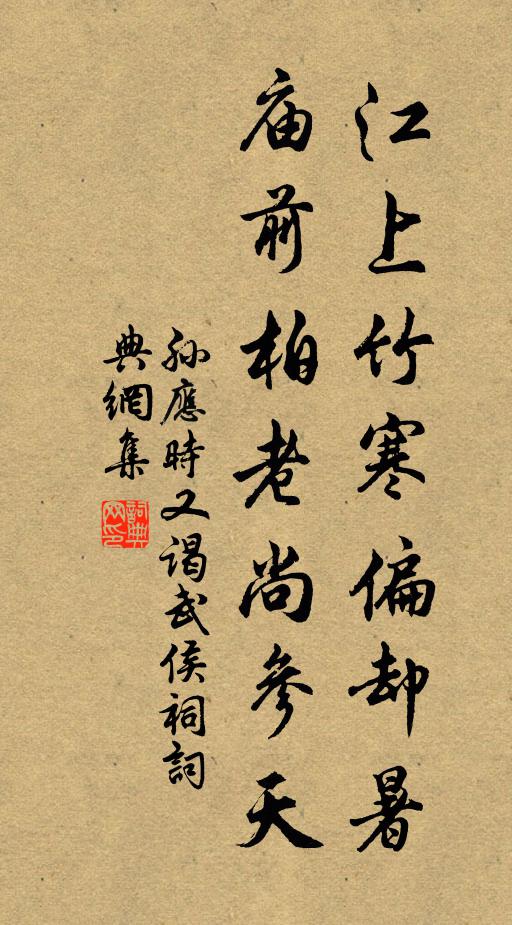 江上竹寒偏却暑
庙前柏老尚參天
孙應時又谒武侯祠詞
典網集
詞典網印